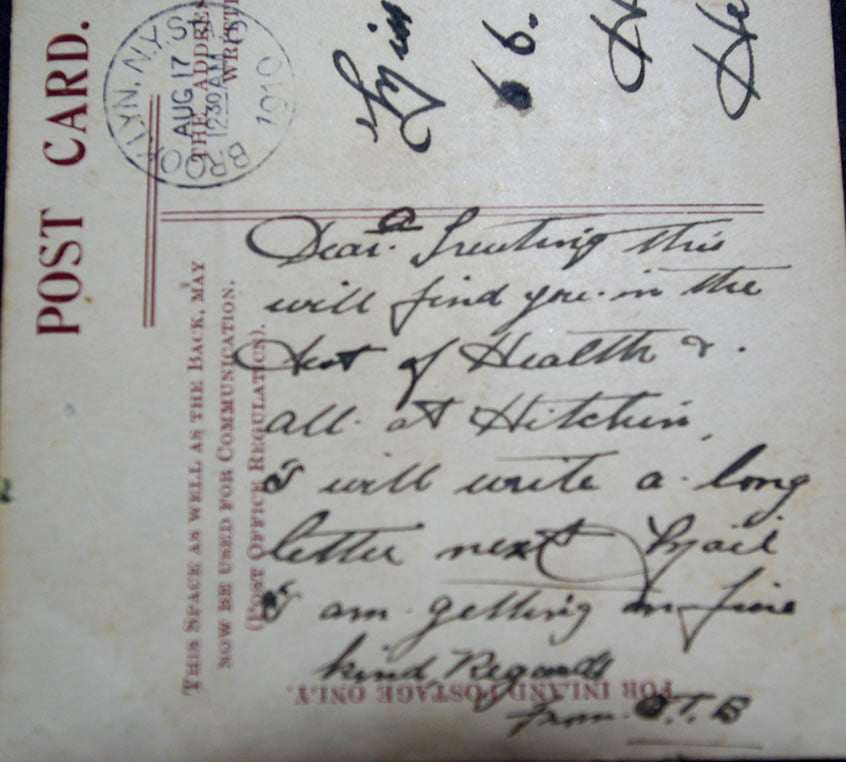 POST CARD.
THE ADDRES
WRITT
BROOKLYN, N.Y.
AUG 17
1230 AM
1910
66.
H
He
THIS SPACE AS WELL AS THE BACK, MAY
NOW BE USED FOR COMMUNICATION.
(POST OFFICE REGULATION).
FOR INLAND POSTAGE ONLY.
Dear a this
will find you in the
best of Health &.
all at Hitchin,
I will write a long
letter next Mail
I am getting on fine
kind Regards
From T. B